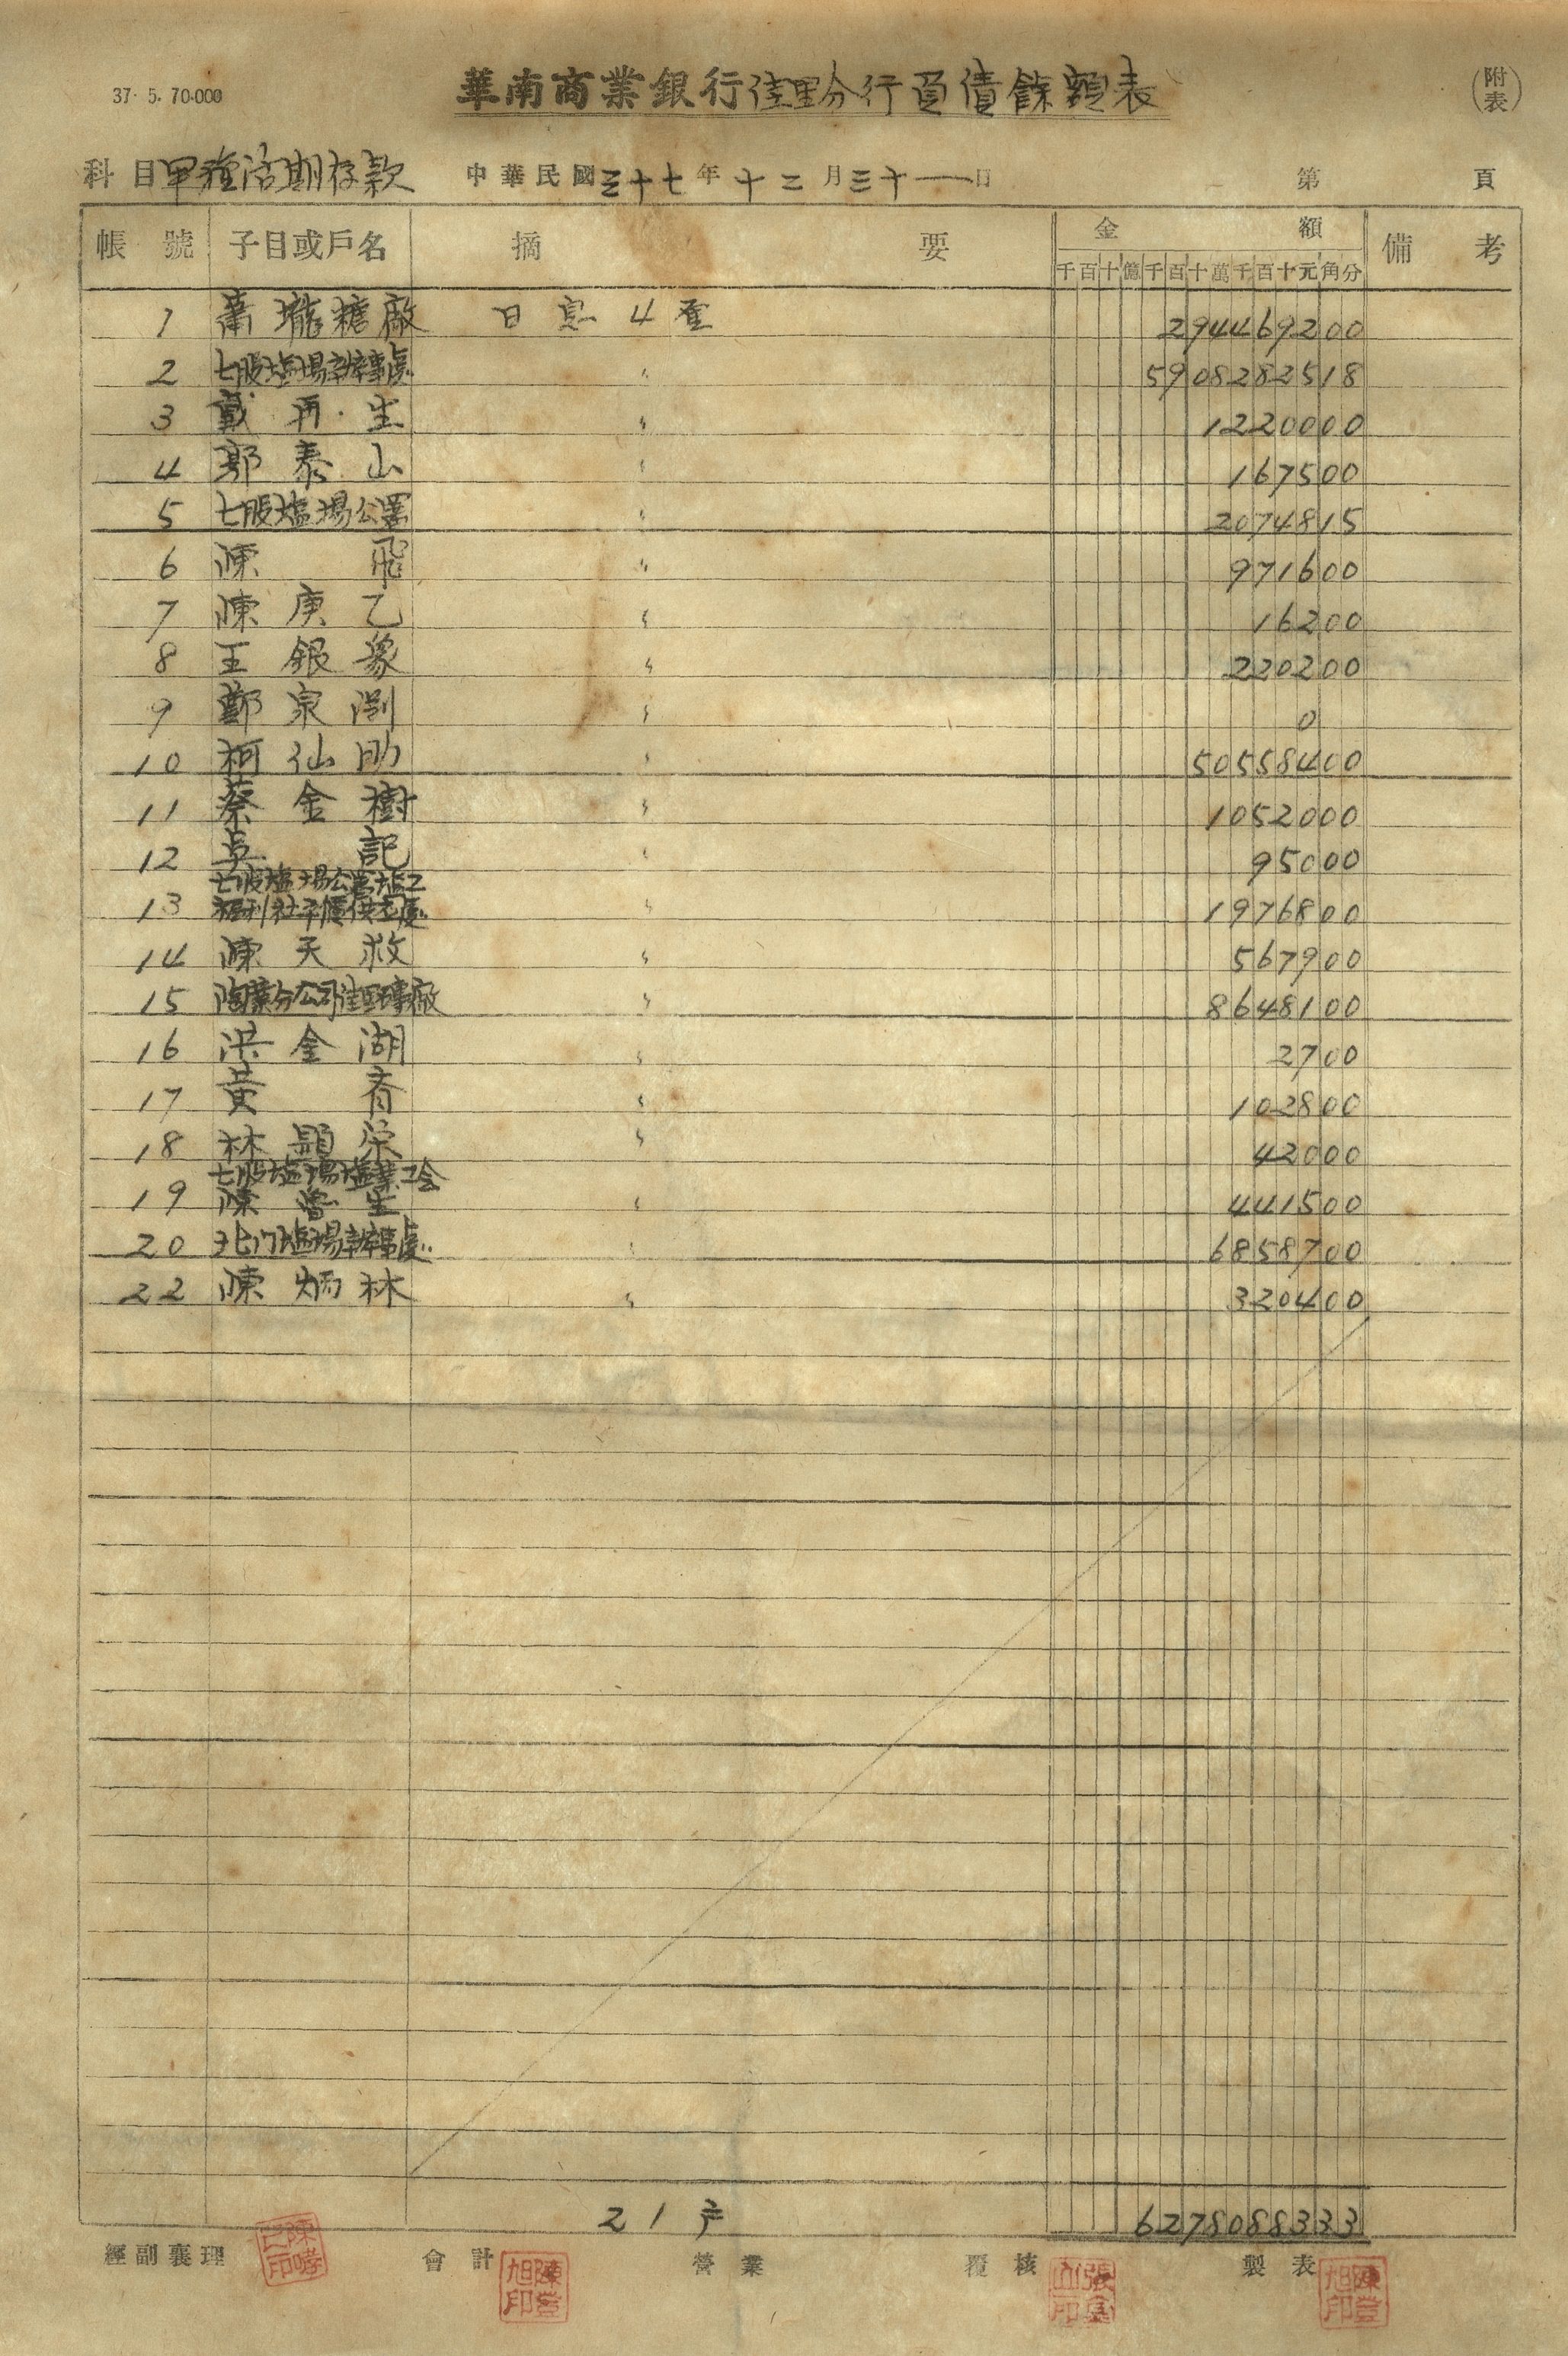 37. 5. 70.000
華南商業銀行佳里分行負債餘額表
(附表)
科目甲種活期存款 中華民國三十七年十二月三十一日 第 頁
帳號 子目或戶名 摘要 金額 備考
千百十億千百十萬千百十元角分
1 蕭壠糖廠 日息4厘 294469200
2 七股塩場辦事處 〃 5908282518
3 戴再生 〃 1220000
4 郭泰山 〃 167500
5 七股塩場公署 〃 2074815
6 陳飛 〃 971600
7 陳庚乙 〃 16200
8 王銀象 〃 220200
9 鄭泉 〃 0
10 柯仙助 〃 50558400
11 蔡金樹 〃 1052000
12 吳記 〃 95000
13 七股塩場公署塩工福利社平價供應處 〃 1976800
14 陳天救 〃 567900
15 陶業分公司佳里磚廠 〃 8648100
16 洪金湖 〃 2700
17 黃 〃 102800
18 林顯榮 〃 42000
19 七股塩場塩業工会陳營生 〃 441500
20 北门塩場辦事處 〃 6858700
22 陳炳林 〃 320400
21戶 6278088333
經副襄理 會計 營業 覆核 製表